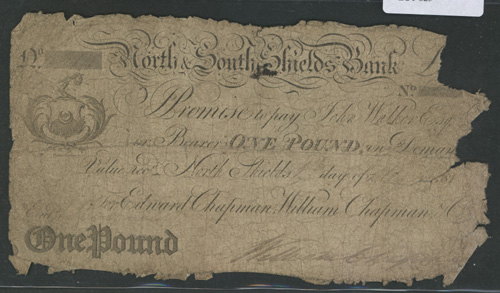 No
North & South Shields Bank
No
I Promise to pay John Walker Esqr
or Bearer ONE POUND, on Deman
Value recd North Shields day of
For Edward Chapman, William Chapman & C
One Pound
William Chapm